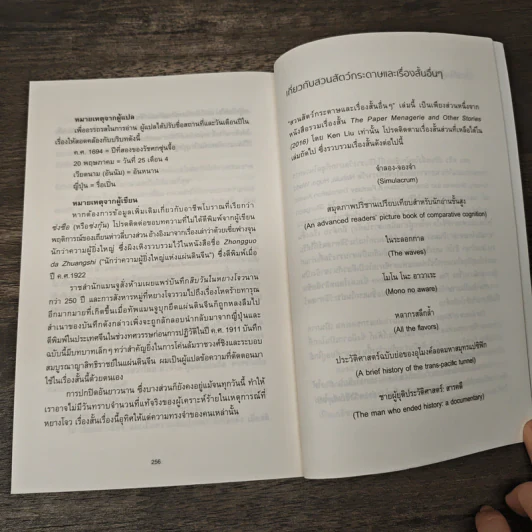 หมายเหตุจากผู้แปล
เพื่ออรรถรสในการอ่าน ผู้แปลได้ปรับชื่อสถานที่และวันเดือนปีใน
เรื่องให้สอดคล้องกับบริบทดังนี้
ค.ศ. 1694 = ปีที่สองของรัชศกซุ่นจื้อ
20 พฤษภาคม = วันที่ 25 เดือน 4
เวียดนาม (อันนัม) = อันหนาน
ญี่ปุ่น = รื่อเปิ่น
หมายเหตุจากผู้เขียน
หากต้องการข้อมูลเพิ่มเติมเกี่ยวกับอาชีพโบราณที่เรียกว่า
ซ่งซือ (หรือซ่งกุ้น) โปรดติดต่อขอบทความที่ไม่ได้ตีพิมพ์จากผู้เขียน
พฤติการณ์ของเถียนห่าวลี่บางส่วน อ้างอิงมาจากเรื่องเล่าว่าด้วยเซี่ยฟางจุน
นักว่าความผู้ยิ่งใหญ่ ซึ่งผิงเหิงรวบรวมไว้ในหนังสือชื่อ Zhongguo
da Zhuangshi ("นักว่าความผู้ยิ่งใหญ่แห่งแผ่นดินจีน") ซึ่งตีพิมพ์เมื่อ
ปี ค.ศ.1922
ราชสำนักแมนจูสั่งห้ามเผยแพร่บันทึกสิบวันในหยางโจวนาน
กว่า 250 ปี และการสังหารหมู่ที่หยางโจวรวมไปถึงเรื่องโหดร้ายทารุณ
อีกมากมายที่เกิดขึ้นเมื่อทัพแมนจูบุกยึดแผ่นดินจีนก็ถูกหลงลืมไป
สำเนาของบันทึกดังกล่าวเพิ่งจะถูกลักลอบนำกลับมาจากญี่ปุ่นและ
ตีพิมพ์ในประเทศจีนในช่วงทศวรรษก่อนการปฏิวัติในปี ค.ศ. 1911 บันทึก
ฉบับนี้มีบทบาทเล็กๆ ทว่าสำคัญยิ่งในการโค่นล้มราชวงศ์ชิงและระบอบ
สมบูรณาญาสิทธิราชย์ในแผ่นดินจีน ผมเป็นผู้แปลข้อความที่คัดตอนมา
ใช้ในเรื่องสั้นนี้ด้วยตนเอง
การปกปิดอันยาวนาน ซึ่งบางส่วนก็ยังคงอยู่แม้จนทุกวันนี้ ทำให้
เราอาจไม่มีวันทราบจำนวนที่แท้จริงของผู้เคราะห์ร้ายในเหตุการณ์ที่
หยางโจว เรื่องสั้นเรื่องนี้อุทิศให้แด่ความทรงจำของคนเหล่านั้น
256
เกี่ยวกับสวนสัตว์กระดาษและเรื่องสั้นอื่นๆ
"สวนสัตว์กระดาษและเรื่องสั้นอื่นๆ" เล่มนี้ เป็นเพียงส่วนหนึ่งจาก
หนังสือรวมเรื่องสั้น The Paper Menagerie and Other Stories
(2016) โดย Ken Liu เท่านั้น โปรดติดตามเรื่องสั้นส่วนที่เหลือได้ใน
เล่มถัดไป ซึ่งรวบรวมเรื่องสั้นดังต่อไปนี้
จำลอง-จองจำ
(Simulacrum)
สมุดภาพปริชานเปรียบเทียบสำหรับนักอ่านชั้นสูง
(An advanced readers' picture book of comparative cognition)
ในระลอกกาล
(The waves)
โมโน โนะ อาวาเระ
(Mono no aware)
หลากรสลึกล้ำ
(All the flavors)
ประวัติศาสตร์ฉบับย่อของอุโมงค์ลอดมหาสมุทรแปซิฟิก
(A brief history of the trans-pacific tunnel)
ชายผู้ยุติประวัติศาสตร์: สารคดี
(The man who ended history: a documentary)